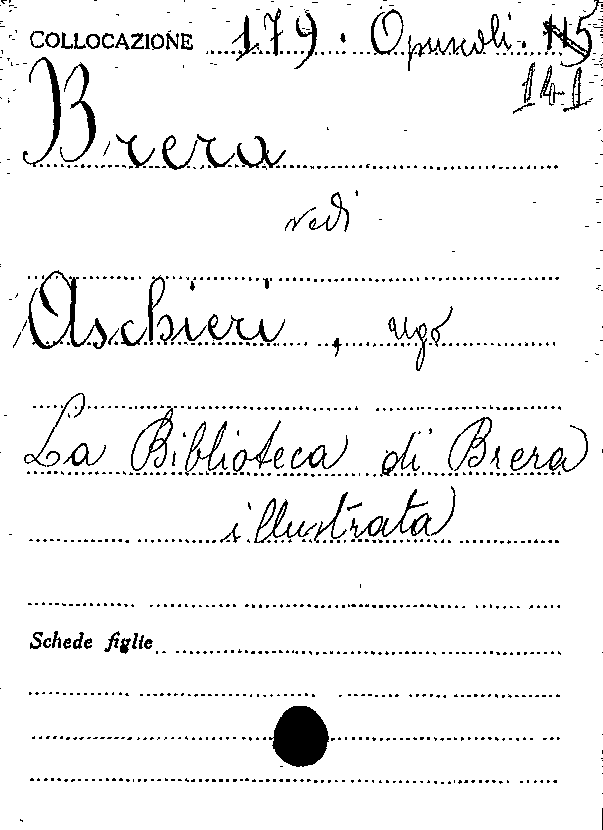 COLLOCAZIONE 179. Opuscoli. 115
141
Brera
vedi
Aschieri, Ugo
La Biblioteca di Brera
illustrata
Schede figlie